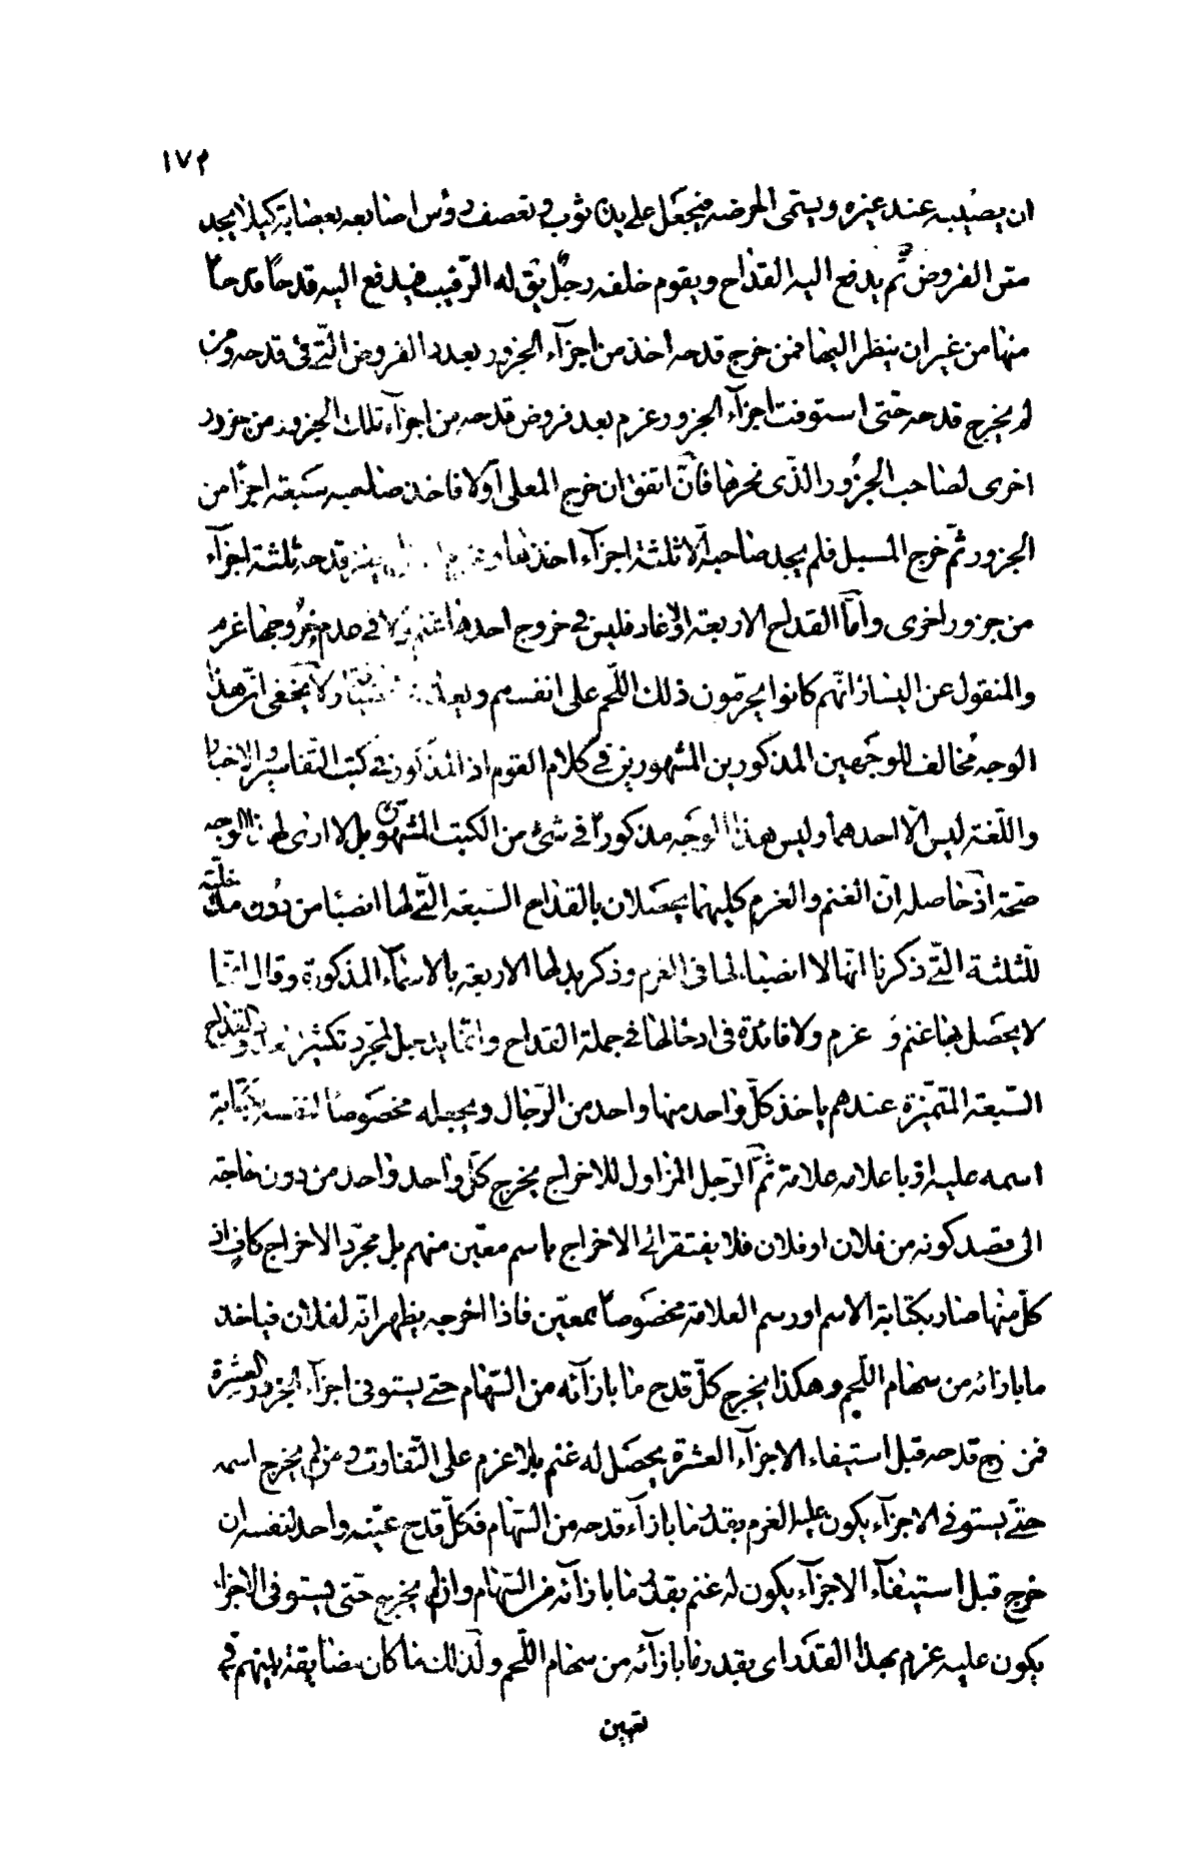 ١٧٢
ان يصيبه عند غيره ويسمى الحرضه فيجعل على يديه ثوب وتعصف رؤس اصابعه بعصابة كيلا يجد
مس الفروض ثم يدفع اليه القداح ويقوم خلفه رجل يق له الرقيب فيدفع اليه قدحاً قدحاً
منها من غير ان ينظر اليها فمن خرج قدحه اخذ من اجزآء الجزور بعدد الفروض التي في قدحه ومن
لم يخرج قدحه حتى استوفت اجزآء الجزور غرم بعدد فروض قدحه من اجزآء تلك الجزور من جزور
اخرى لصاحب الجزور الذى نحرها فان اتفق ان خرج المعلى اولا فاخذ صاحبه سبعة اجزآ من
الجزور ثم خرج المسبل فلم يجد صاحبه الا ثلثة اجزآء اخذها وغرم قدحه ثلثة اجزآء
من جزور اخرى واما القداح الاربعة الاوغاد فليس في خروج احدها غنم ولا في عدم خروجها غرم
والمنقول عن اليسار انهم كانوا يحرمون ذلك اللحم على انفسهم ولا يخفى ان هذا
الوجه مخالف للوجهين المذكورين المشهورين في كلام القوم اذ المذكور في كتب التفاسير والاخبار
واللغة ليس الا احدهما وليس هذا الوجه مذكوراً في شئ من الكتب المشهورة بل لا ارى لهذا الوجه
صحة اذ حاصله ان الغنم والغرم كليهما يحصلان بالقداح السبعة التي لها انصبا من دون مدخلية
للثلثة التي ذكرنا انها لا انصباء لها في الغرم وذكر بدلها الاربعة بالاسمآء المذكورة وقال انها
لا يحصل بها غنم و غرم ولا فائدة في ادخالها في جملة القداح وانما يدخل لمجرد تكثير القداح
السبعة المتميزة عندهم ياخذ كل واحد منها واحد من الرجال ويجعله مخصوصاً لنفسه بكتابة
اسمه عليه او باعلامه علامة ثم الرجل المزاول للاخراج يخرج كل واحد واحد من دون حاجة
الى قصد كونه من فلان او فلان فلا يفتقر الى الاخراج باسم معين منهم بل مجرد الاخراج كاف اذ
كل منها صار بكتابة الاسم او رسم العلامة مخصوصاً بمعين فاذا اخرجه يظهر انه لفلان فياخذ
ما بازائه من سهام اللحم وهكذا يخرج كل قدح ما بازآئه من السهام حتى يستوفى اجزآء الجزور العشرة
فمن خرج قدحه قبل استيفاء الاجزآء العشرة يحصل له غنم بلا غرم على التفاوت ومن لم يخرج اسمه
حتى يستوفى الاجزآء يكون عليه الغرم بقدر ما بازآء قدحه من السهام فكل قدح عينه واحد لنفسه ان
خرج قبل استيفآء الاجزآء يكون له غنم بقدر ما بازآئه من السهام وان لم يخرج حتى يستوفى الاجزاء
يكون عليه غرم بهذا القدر اى بقدر ما بازآئه من سهام اللحم ولذلك ما كان مضايقة بينهم في
تعيين